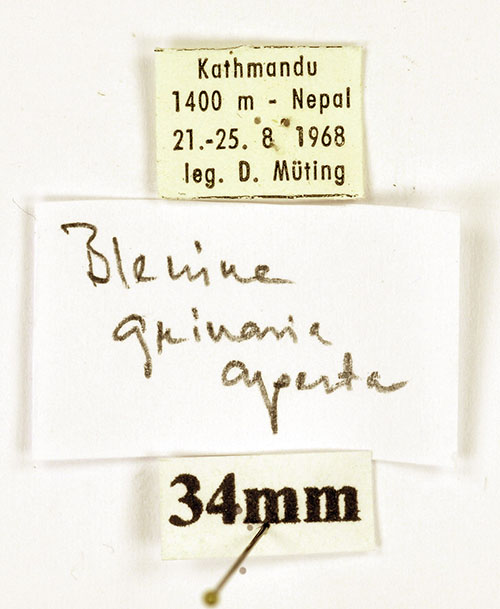 Kathmandu
1400 m - Nepal
21.-25. 8 1968
leg. D. Müting
Blenina
quinaria
aperta
34mm